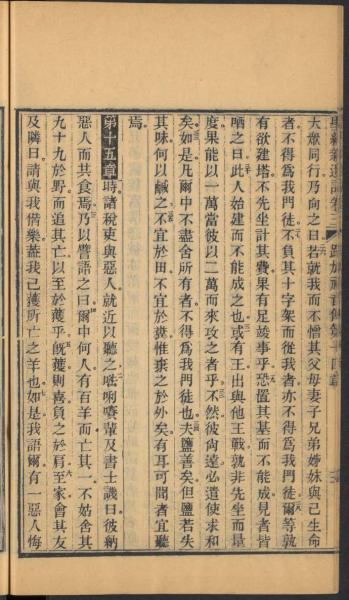 大眾同行乃向之曰若就我而不憎其父母妻子兄弟姊妹與己生命
者不得為我門徒不負其十字架而從我者亦不得為我門徒爾等孰
有欲建塔不先坐計其費果有足竣事乎恐置其基而不能成見者皆
哂之曰此人始建而不能成之也或有王出與他王戰孰非先坐而量
度果能以一萬當彼以二萬而來攻之者乎不然彼尙遠必遣使求和
矣如是凡爾中不盡舍所有者不得為我門徒也夫鹽善矣但鹽若失
其味何以鹹之不宜於田不宜於糞惟棄之於外矣有耳可聞者宜聽
焉
第十五章時諸稅吏與惡人就近以聽之唏唎嘫輩及書士譏曰彼納
惡人而其食焉乃以譬語之曰爾中何人有百羊而亡其一不姑舍其
九十九於野而追其亡以至於獲乎旣獲則喜負之於肩至家會其友
及隣曰請與我偕樂蓋我已獲所亡之羊也如是我語爾有一惡人悔